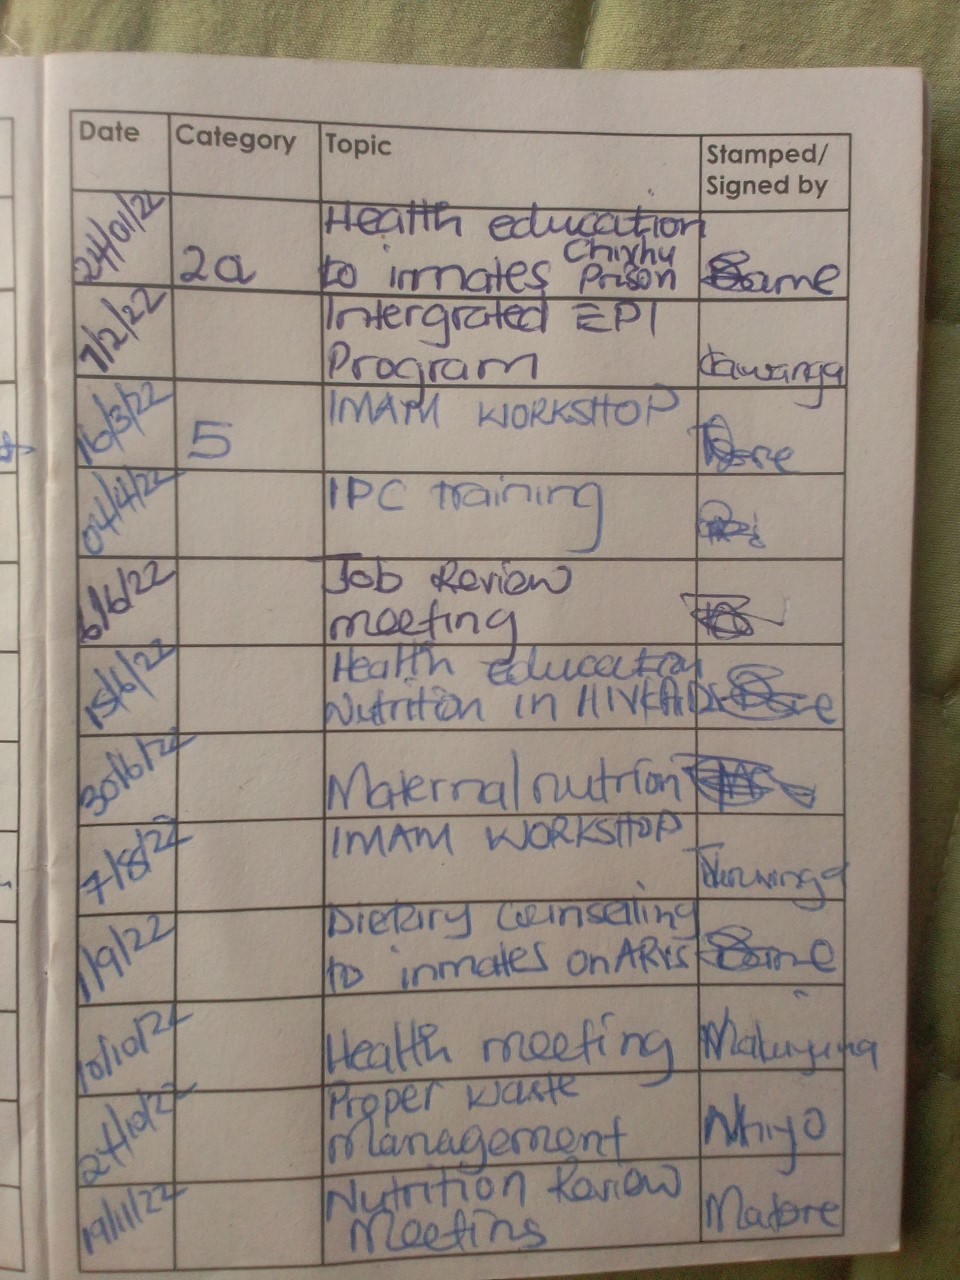 Date Category Topic Stamped/
Signed by
24/01/22 2a Health education
to inmates Chixhu
Prison
7/2/22 Intergrated EPI
Program
16/3/22 5 IMAM WORKSHOP
04/4/22 IPC training
6/6/22 Job Review
meeting
15/6/22 Health education
Nutrition in HIV
30/6/22 Maternal nutrion
7/8/22 IMAM WORKSHOP
1/9/22 Dietary Counselling
to inmates on ARVs
10/10/22 Health meeting
24/10/22 Proper waste Nhiyo
Management
19/11/22 Nutrition Review Matore
Meetings